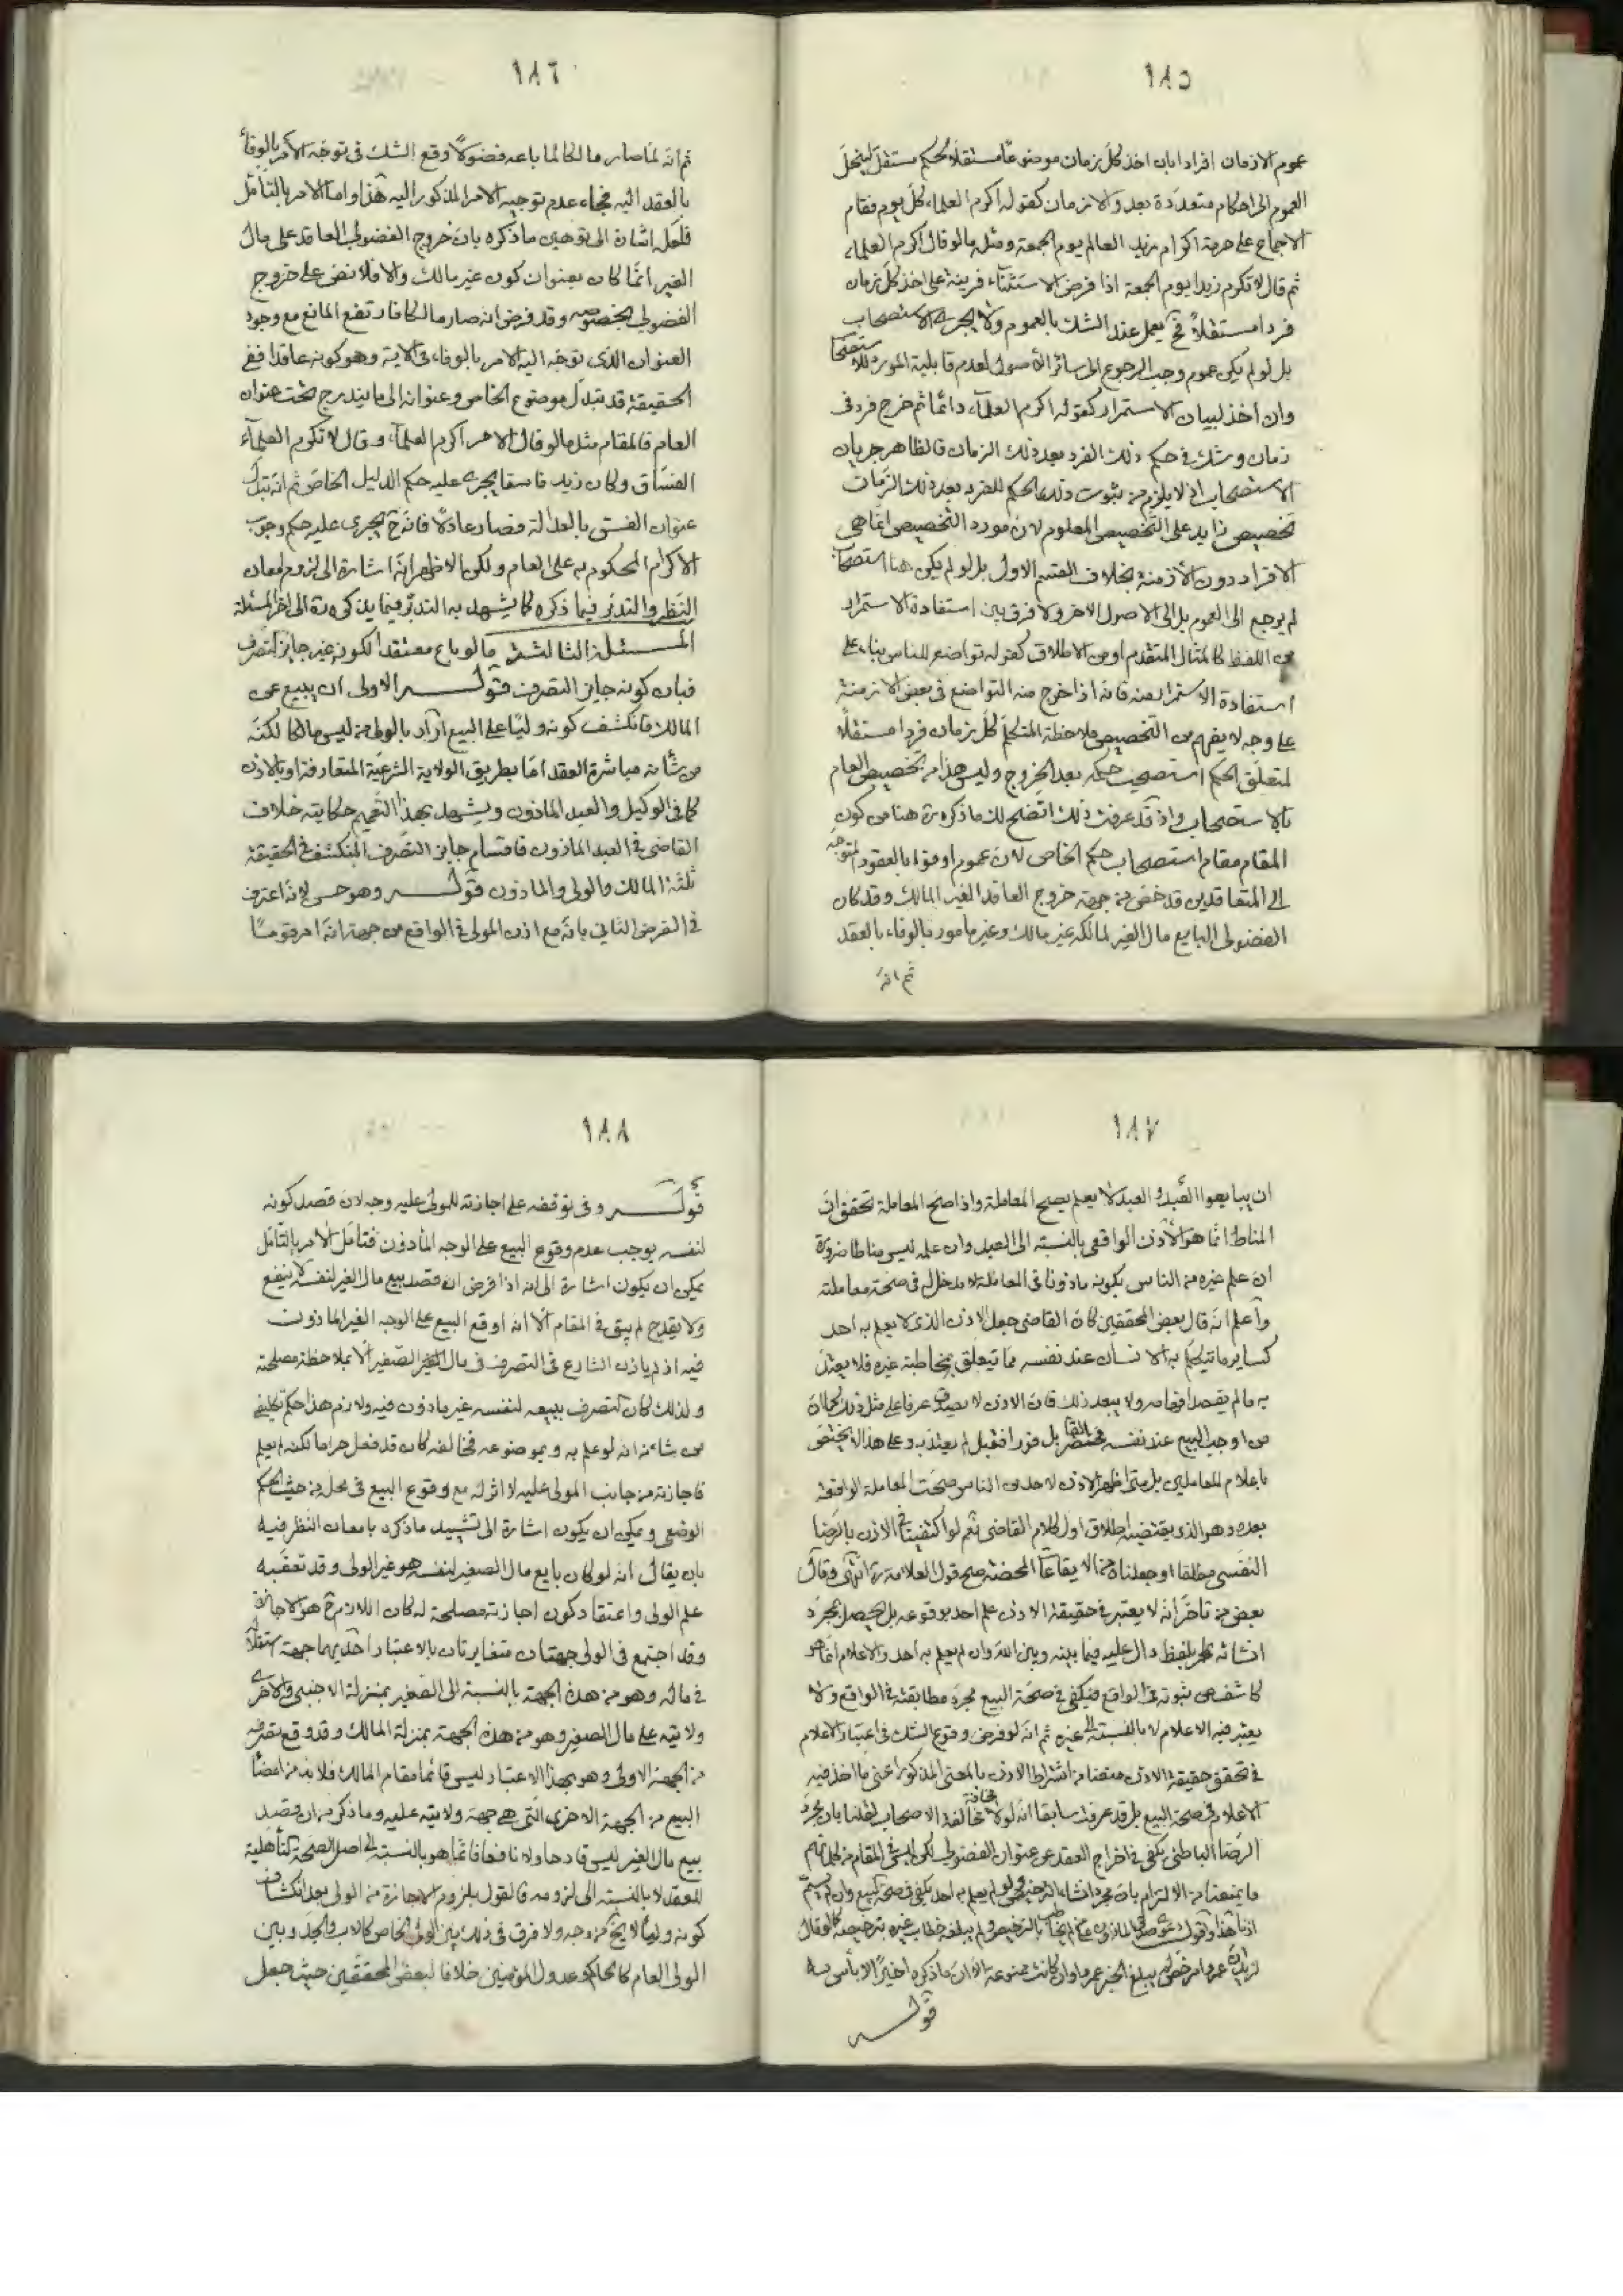 ١٨٥
عموم الازمان افرادا بان اخذ كل زمان موضوعا مستقلا لحكم مستقل لينحل
العموم الى احكام متعددة بعدد الازمان كقوله اكرم العلماء كل يوم فقام
الاجماع على حرمة اكرام زيد العالم يوم الجمعة ومثله ما لو قال اكرم العلماء
ثم قال لا تكرم زيدا يوم الجمعة اذا فرض الاستثناء قرينة على اخذ كل زمان
فردا مستقلا فح يعمل عند الشك بالعموم ولا يجرى الاستصحاب
بل لو لم يكن عموم وجب الرجوع الى سائر الاصول لعدم قابلية المورد للاستصحاب
وان اخذ لبيان الاستمرار كقوله اكرم العلماء دائما ثم خرج فرد فى
زمان وشك فى حكم ذلك الفرد بعد ذلك الزمان فالظاهر جريان
الاستصحاب اذ لا يلزم من ثبوت ذلك الحكم للفرد بعد ذلك الزمان
تخصيص زايد على التخصيص المعلوم لان مورد التخصيص انما هى
الافراد دون الازمنة بخلاف القسم الاول بل لو لم يكن هنا استصحاب
لم يرجع الى العموم بل الى الاصول الاخر ولا فرق بين استفادة الاستمرار
من اللفظ كالمثال المتقدم او من الاطلاق كقوله تواضع للناس بناء على
استفادة الاستمرار منه فانه اذا خرج منه التواضع فى بعض الازمنة
على وجه لا يفهم من التخصيص ملاحظة المتكلم كل زمان فردا مستقلا
لمتعلق الحكم استصحب حكمه بعد الخروج وليس هذا من تخصيص العام
بالاستصحاب واذ قد عرفت ذلك اتضح لك ما ذكره ره هنا من كون
المقام مقام استصحاب حكم الخاص لان عموم اوفوا بالعقود المتوجه
الى المتعاقدين قد خص من جهة خروج العاقد الغير المالك وقد كان
الفضولى البايع مال الغير لمالكه غير مالك وغير مامور بالوفاء بالعقد
ثم انه
١٨٦
ثم انه لما صار مالكا لما باعه فضولا وقع الشك فى توجه الامر بالوفاء
بالعقد اليه فجاء عدم توجيه الامر المذكور اليه هذا واما الامر بالتامل
فلعل اشارة الى توهين ما ذكره بان خروج الفضولى العاقد على مال
الغير انما كان بعنوان كون غير مالك والا فلا نص على خروج
الفضولى بخصوصه وقد فرض انه صار مالكا فارتفع المانع مع وجود
العنوان الذى توجه اليه الامر بالوفاء فى الاية وهو كونه عاقدا ففى
الحقيقة قد تبدل موضوع الخاص وعنوانه الى ما يندرج تحت عنوان
العام فالمقام مثل ما لو قال الامر اكرم العلماء وقال لا تكرم العلماء
الفساق وكان زيد فاسقا يجرى عليه حكم الدليل الخاص ثم انه تبدل
عنوان الفسق بالعدالة فصار عادلا فانه ح يجرى عليه حكم وجوب
الاكرام المحكوم به على العام ولكن الاظهر انه اشارة الى لزوم امعان
النظر والتدبر فيما ذكره كما يشهد به التدبر فيما يذكره ره الى اخر المسئلة
المسئلة الثالثة ما لو باع معتقدا لكونه غير جايز التصرف
فبان كونه جايز التصرف قوله الاولى ان يبيع عن
المالك فانكشف كونه وليا على البيع اراد بالولى من ليس مالكا لكنه
من شانه مباشرة العقد اما بطريق الولاية الشرعية المتعارفة او بالاذن
كما فى الوكيل والعبد الماذون ويشهد بهذا التعميم حكايته خلاف
القاضى فى العبد الماذون فاقسام جايز التصرف المنكشف فى الحقيقة
ثلثة المالك والولى والماذون قوله وهو حسن لانه اعترف
فى الفرض الثانى بانه مع اذن المولى فى الواقع من جهة انه امر قوما
١٨٧
ان يبايعوا العبد والعبد لا يعلم يصح المعاملة واذا صح المعاملة تحقق ان
المناط انما هو الاذن الواقعى بالنسبة الى العبد وان علمه ليس مناطا ضرورة
ان علم غيره من الناس بكونه ماذونا فى المعاملة لا مدخل له فى صحة معاملته
واعلم انه قال بعض المحققين كان القاضى جعل الاذن الذى لا يعلم به احد
كساير ما يتكلم به الانسان عند نفسه مما يتعلق بمخاطبة غيره فلا يعتد
به ما لم يقصد افهامه ولا يبعد ذلك فان الاذن لا يصدق عرفا على مثل ذلك كما ان
من اوجب البيع عند نفسه بل فورا فقبل لم يعتد به وعلى هذا لا يختص
باعلام المعاملين بل متى اظهر الاذن لاحد من الناس صحت المعاملة الواقعة
بعده وهو الذى يقتضيه اطلاق اول كلام القاضى نعم لو اكتفينا فى الاذن بالرضا
النفسى مطلقا او جعلناه من الايقاعات المحضة صح قول العلامة ره انتهى وقال
بعض من تاخر انه لا يعتبر فى حقيقة الاذن علم احد بوقوعه بل يحصل بمجرد
انشائه بلفظ دال عليه فيما بينه وبين الله وان لم يعلم به احد والاعلام انما هو
كاشف عن ثبوته فى الواقع فيكفى فى صحة البيع مجرد مطابقته فى الواقع ولا
يعتبر فيه الاعلام لا بالنسبة الى غيره ثم انه لو فرض وقوع الشك فى اعتبار الاعلام
فى تحقق حقيقة الاذن منعنا من اشتراط الاذن بالمعنى المذكور اعنى ما اخذ فيه
الاعلام فى صحة البيع بل قد عرفت سابقا انه لولا مخافة مخالفة الاصحاب لقلنا بان مجرد
الرضا الباطنى يكفى فى اخراج العقد عن عنوان الفضولى لكن ليس فى المقام من كلماتهم
ما يمنعنا من الالتزام بان مجرد انشاء الترخيص ولو لم يعلم به احد يكفى فى صحة البيع وان لم يسم
اذنا هذا واقول
لزيد عمرو امر خص لم يبلغ الخبر عمروا وان كانت ممنوعة الا ان ما ذكره اخيرا لا باس به
قوله
١٨٨
قوله وفى توقفه على اجازته للمولى عليه وجه لان قصد كونه
لنفسه يوجب عدم وقوع البيع على الوجه الماذون فتامل الامر بالتامل
يمكن ان يكون اشارة الى انه اذا فرض ان قصد بيع مال الغير لنفسه لا ينفع
ولا يقدح لم يبق فى المقام الا انه اوقع البيع على الوجه الغير الماذون
فيه اذ لم ياذن الشارع فى التصرف فى مال الصغير الا بملاحظة مصلحته
ولذلك كان التصرف ببيعه لنفسه غير ماذون فيه ولازم هذا حكم تكليفى
من شانه انه لو علم به وبموضوعه فخالفه كان قد فعل حراما لكنه لم يعلم
فاجازته من جانب المولى عليه لا اثر له مع وقوع البيع فى محله من حيث الحكم
الوضعى ويمكن ان يكون اشارة الى تشييد ما ذكره بامعان النظر فيه
بان يقال انه لو كان بايع مال الصغير لنفسه هو غير الولى وقد تعقبه
علم الولى واعتقاد كون اجازته مصلحة له كان اللازم ح هو الاجازة
وقد اجتمع فى الولى جهتان متغايرتان بالاعتبار احديهما جهة استقلاله
فى ماله وهو من هذه الجهة بالنسبة الى الصغير بمنزلة الاجنبى والاخرى
ولايته على مال الصغير وهو من هذه الجهة بمنزلة المالك وقد وقع تصرفه
من الجهة الاولى وهو بهذا الاعتبار ليس قائما مقام المالك فلا بد من امضاء
البيع من الجهة الاخرى التى هى جهة ولايته عليه وما ذكره من ان قصد
بيع مال الغير ليس قادحا ولا نافعا فانما هو بالنسبة الى اصل الصحة كتاهلية
للعقد لا بالنسبة الى لزومه فالقول بلزوم الاجازة من الولى بعد انكشاف
كونه وليا لا يخ من وجه ولا فرق فى ذلك بين الولى الخاص كالاب والجد وبين
الولى العام كالحاكم وعدول المؤمنين خلافا لبعض المحققين حيث جعل